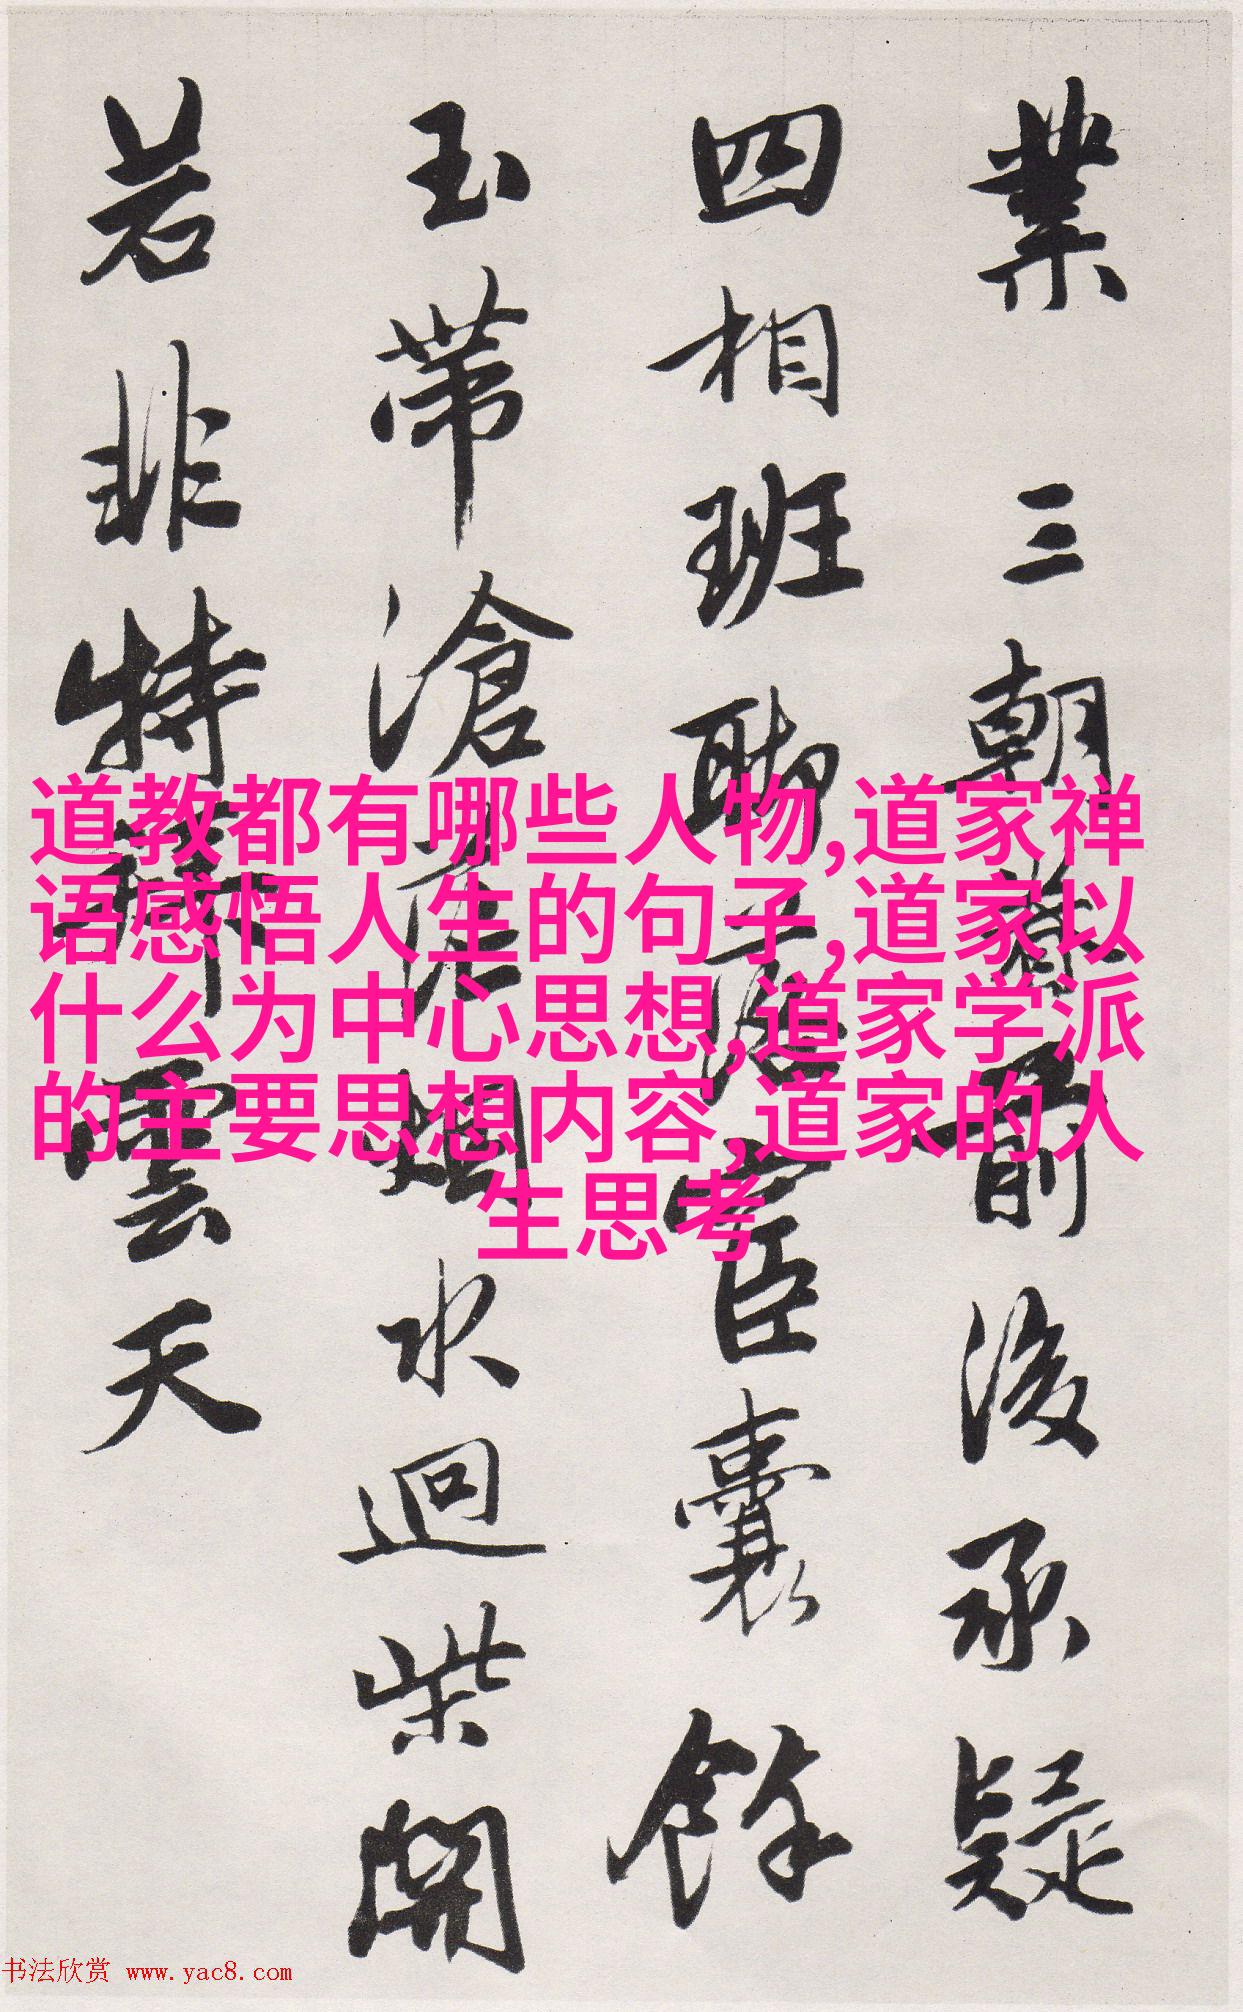 業 三朝前後承疑
四相班聯宦囊餘
玉帶滄烟水迴柴關
若非特雲天
道教都有哪些人物,道家禅
语感悟人生的句子,道家以
什么为中心思想,道家学派
的主要思想内容,道家的人
生思考
书法欣赏 www.yac8.com